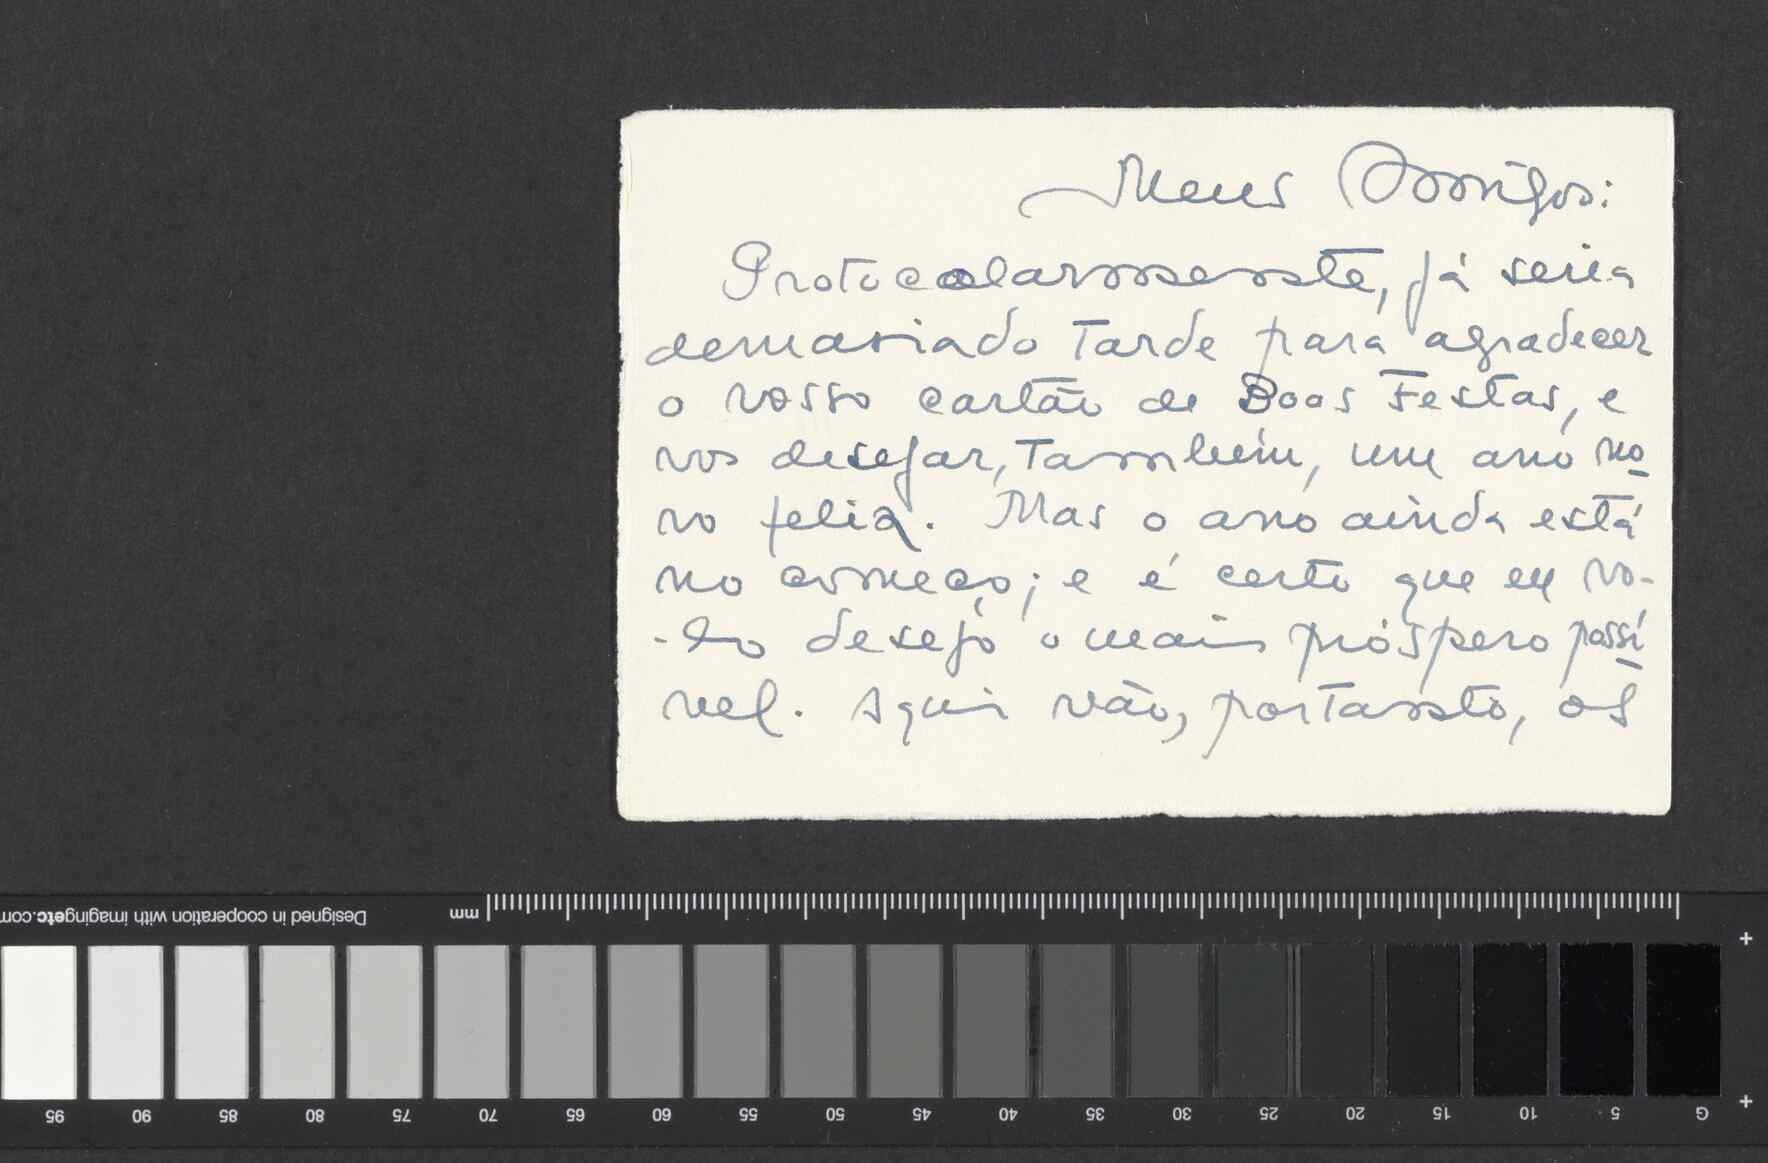 Meus Amigos:
Protocolarmente, já seria
demasiado tarde para agradecer
o vosso cartão de Boas Festas, e
vos desejar, também, um ano no
vo feliz. Mas o ano ainda está
no começo; e é certo que eu vo-
-lo desejo o mais próspero possí
vel. Aqui vão, portanto, os
mm
Designed in cooperation with imagingetc.com
95 90 85 80 75 70 65 60 55 50 45 40 35 30 25 20 15 10 5 G